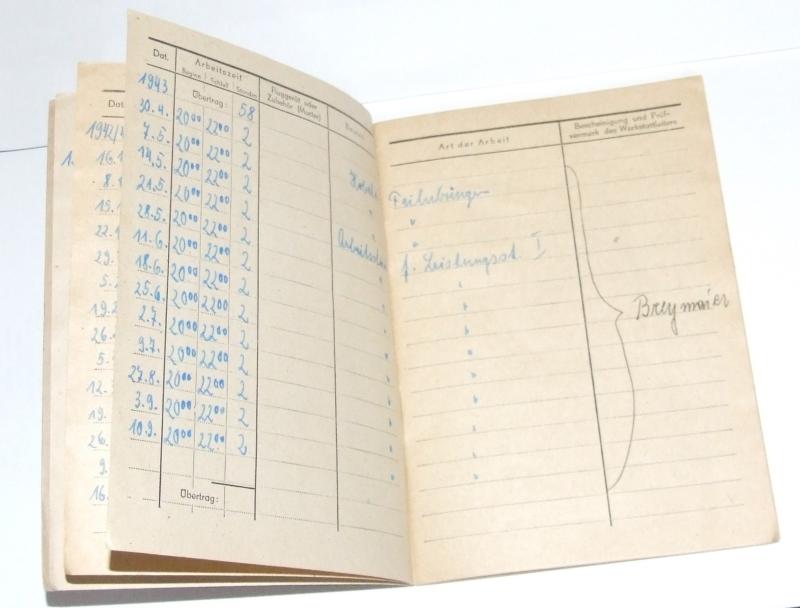 Dat.
Arbeitszeit
Beginn Schluß Stunden
Fluggerät oder
Zubehör (Muster)
1943
Übertrag: 58
30.4. 20⁰⁰ 22⁰⁰ 2
7.5. 20⁰⁰ 22⁰⁰ 2
14.5. 20⁰⁰ 22⁰⁰ 2
21.5. 20⁰⁰ 22⁰⁰ 2
28.5. 20⁰⁰ 22⁰⁰ 2
11.6. 20⁰⁰ 22⁰⁰ 2
18.6. 20⁰⁰ 22⁰⁰ 2
25.6. 20⁰⁰ 22⁰⁰ 2
2.7. 20⁰⁰ 22⁰⁰ 2
9.7. 20⁰⁰ 22⁰⁰ 2
27.8. 20⁰⁰ 22⁰⁰ 2
3.9. 20⁰⁰ 22⁰⁰ 2
10.9. 20⁰⁰ 22⁰⁰ 2
Übertrag:
Art der Arbeit
Bescheinigung und Prüf-
vermerk des Werkstattleiters
f. Leistungsst. I
Breymaier
Dat
1942/4
1. 16.1
8.1
15.1
22.1
29.
5.2
19.2
26.
5.
12.
19.
26.
9.
16.